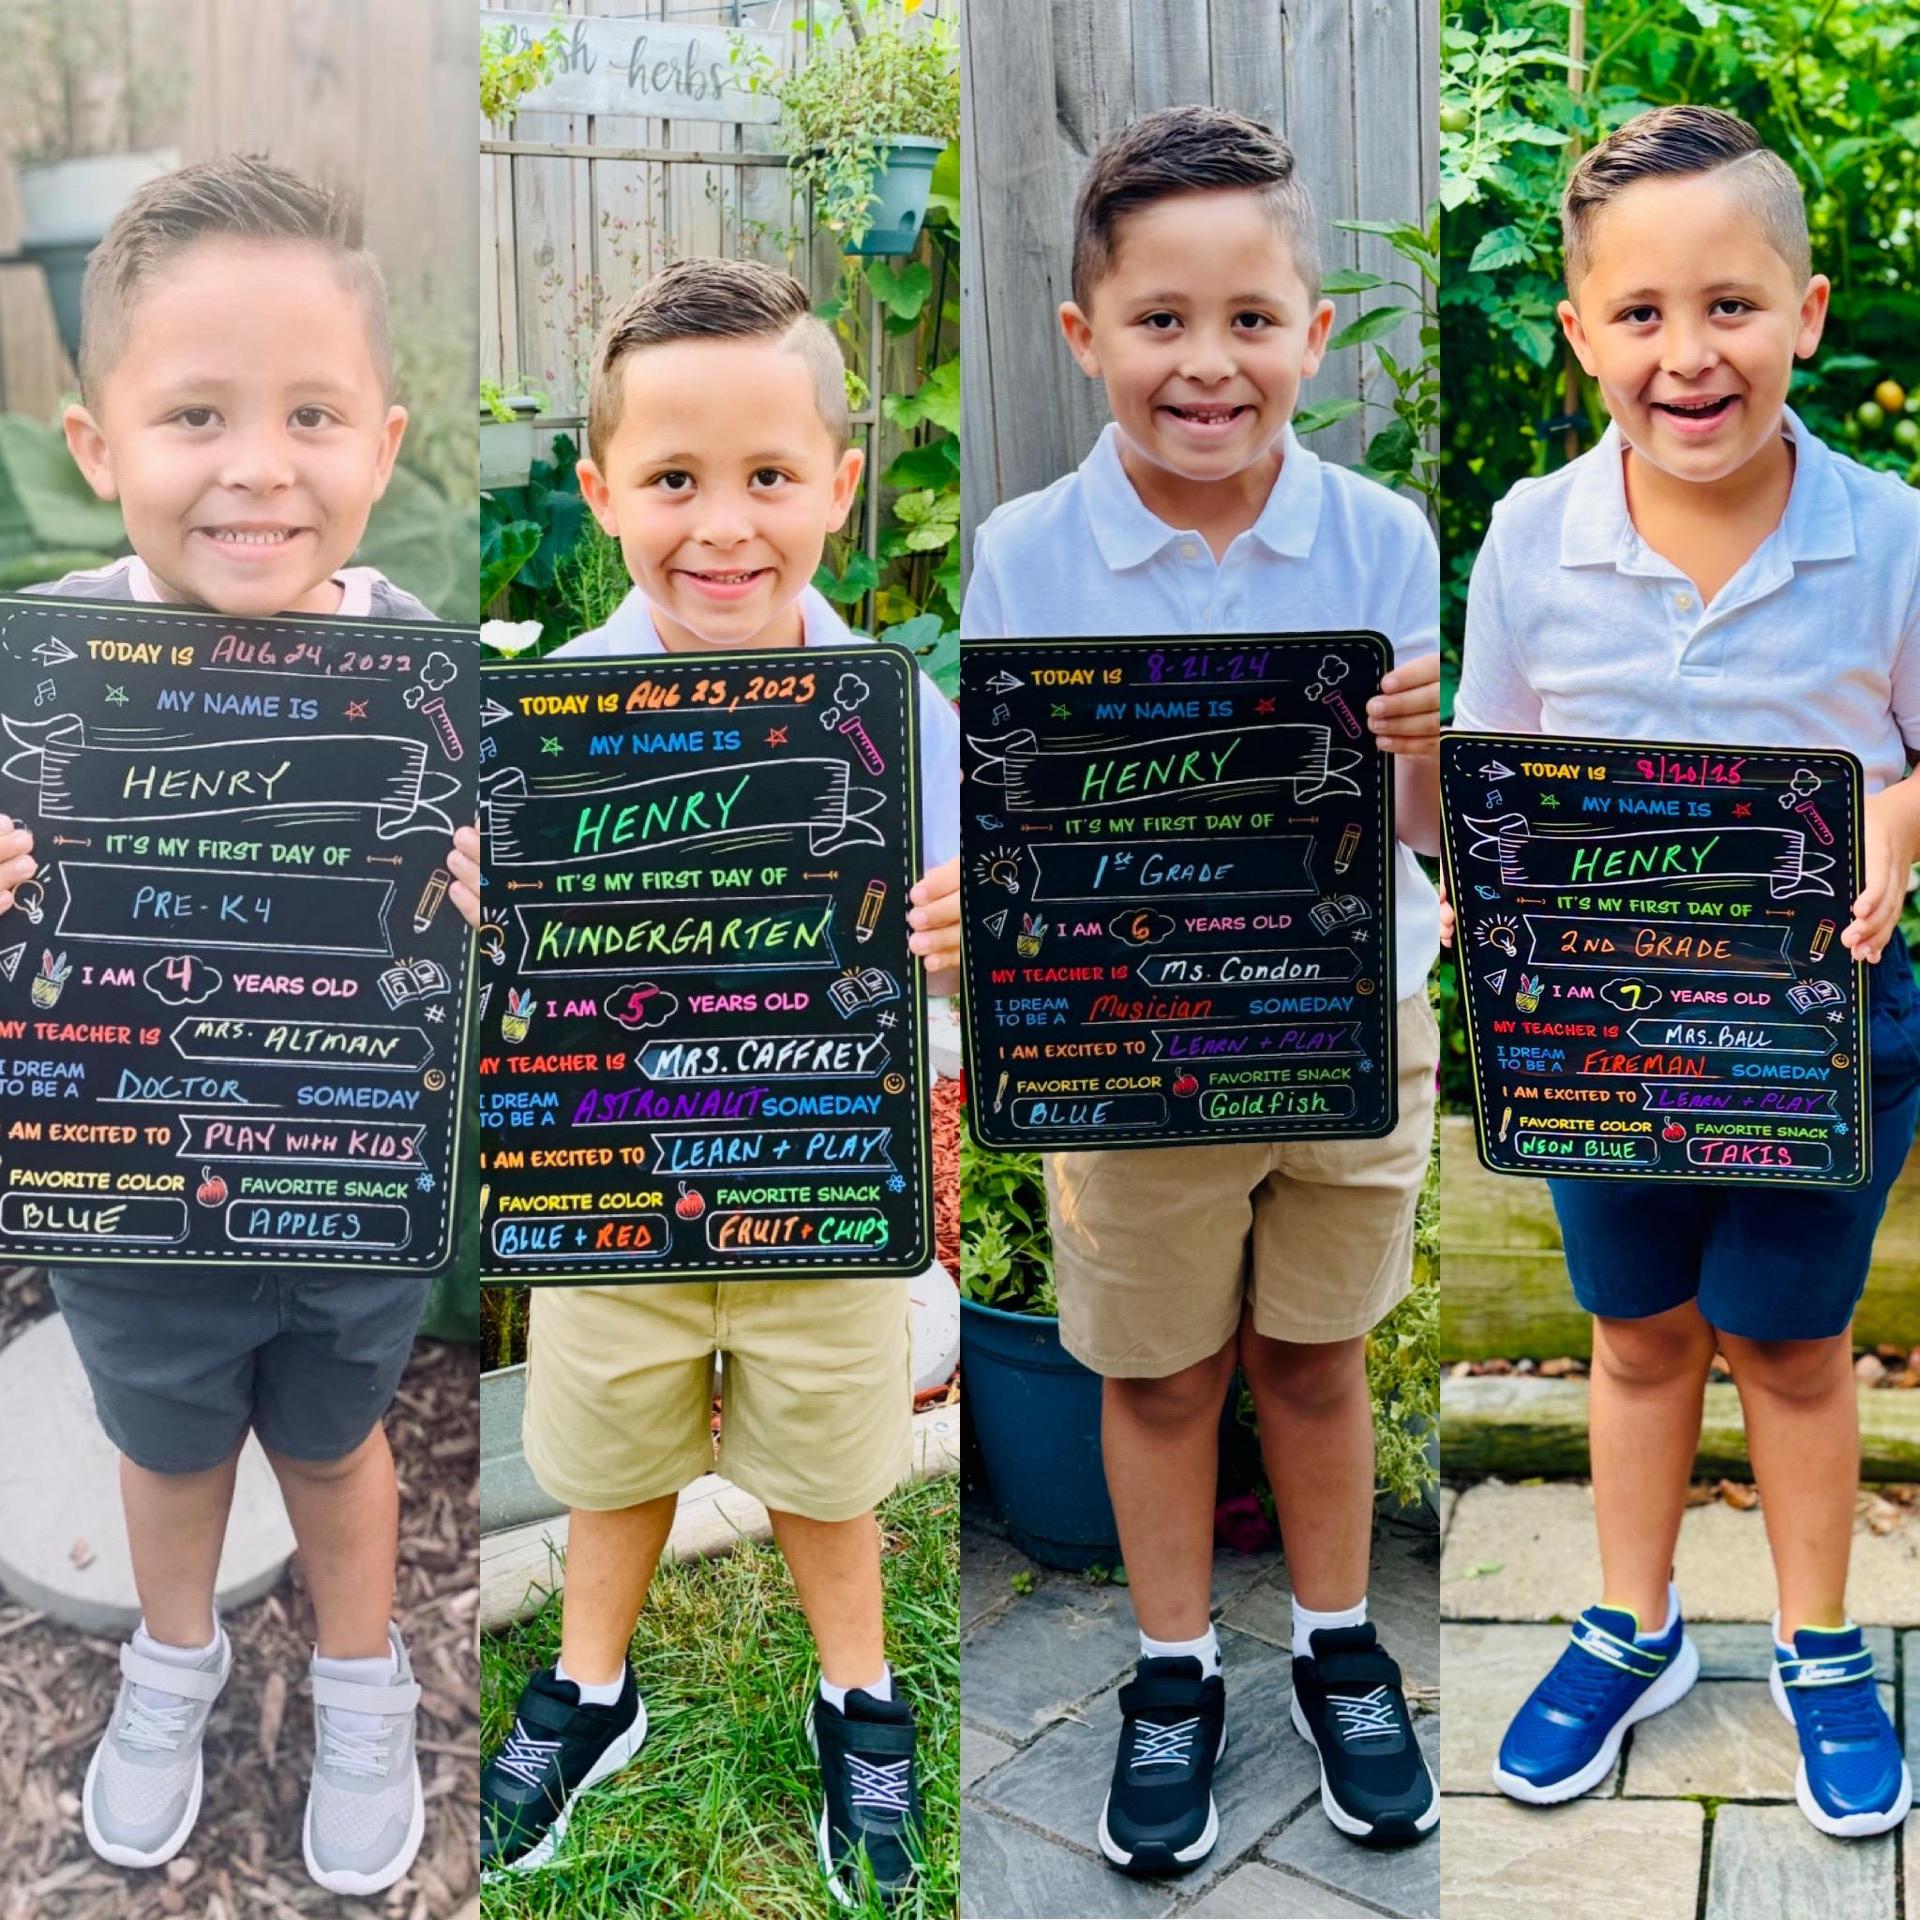 TODAY IS AUG 24, 2022
MY NAME IS
HENRY
IT'S MY FIRST DAY OF
PRE-K4
I AM 4 YEARS OLD
MY TEACHER IS MRS. ALTMAN
I DREAM TO BE A DOCTOR SOMEDAY
AM EXCITED TO PLAY WITH KIDS
FAVORITE COLOR FAVORITE SNACK
BLUE APPLES
fresh herbs
TODAY IS AUG 23, 2023
MY NAME IS
HENRY
IT'S MY FIRST DAY OF
KINDERGARTEN
I AM 5 YEARS OLD
MY TEACHER IS MRS. CAFFREY
I DREAM TO BE A ASTRONAUT SOMEDAY
I AM EXCITED TO LEARN + PLAY
FAVORITE COLOR FAVORITE SNACK
BLUE + RED FRUIT + CHIPS
TODAY IS 8-21-24
MY NAME IS
HENRY
IT'S MY FIRST DAY OF
1st GRADE
I AM 6 YEARS OLD
MY TEACHER IS Ms. Condon
I DREAM TO BE A Musician SOMEDAY
I AM EXCITED TO LEARN + PLAY
FAVORITE COLOR FAVORITE SNACK
BLUE Goldfish
TODAY IS 8/20/25
MY NAME IS
HENRY
IT'S MY FIRST DAY OF
2ND GRADE
I AM 7 YEARS OLD
MY TEACHER IS MRS. BALL
I DREAM TO BE A FIREMAN SOMEDAY
I AM EXCITED TO LEARN + PLAY
FAVORITE COLOR FAVORITE SNACK
NEON BLUE TAKIS